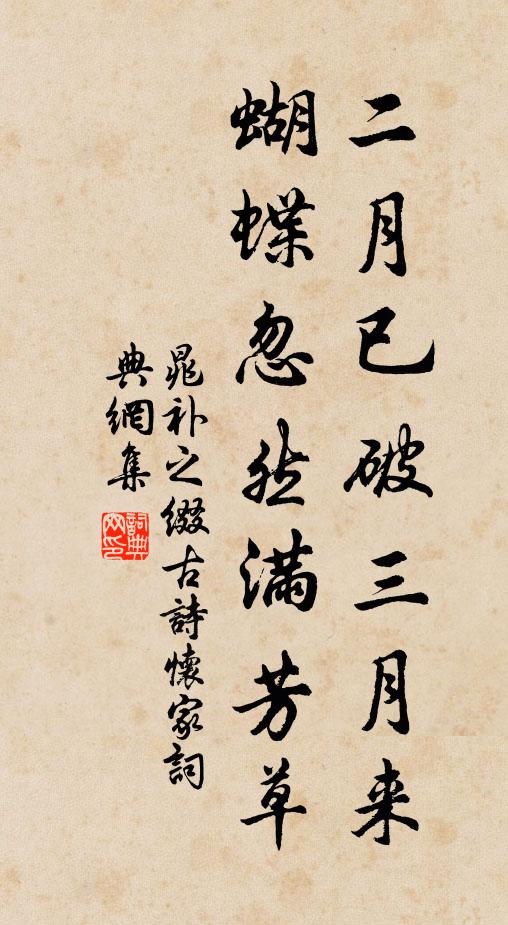 二月已破三月来
蝴蝶忽然满芳草
晁补之缀古詩懷家詞
典網集
詞典網印